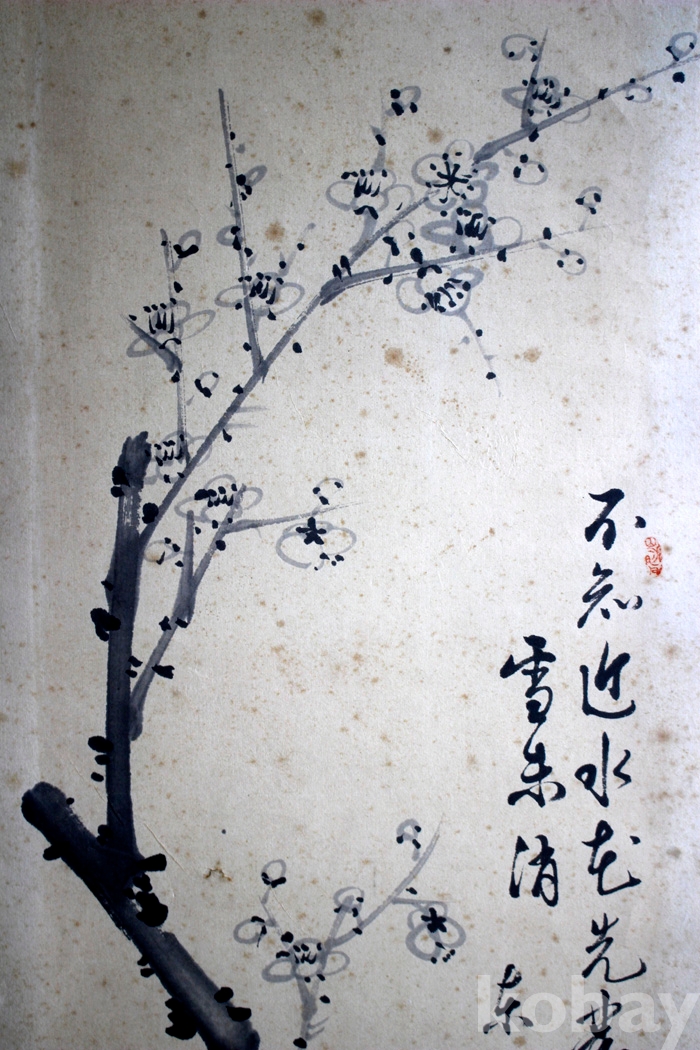 不知近水花先
雪未消
东
kobay